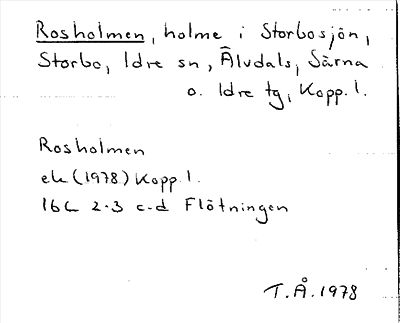 Rosholmen, holme i Storbosjön,
Storbo, Idre sn, Älvdals, Särna
o. Idre tg, Kopp. l.
Rosholmen
ek (1978) Kopp. l.
16C 2-3 c-d Flötningen
T.Å. 1978